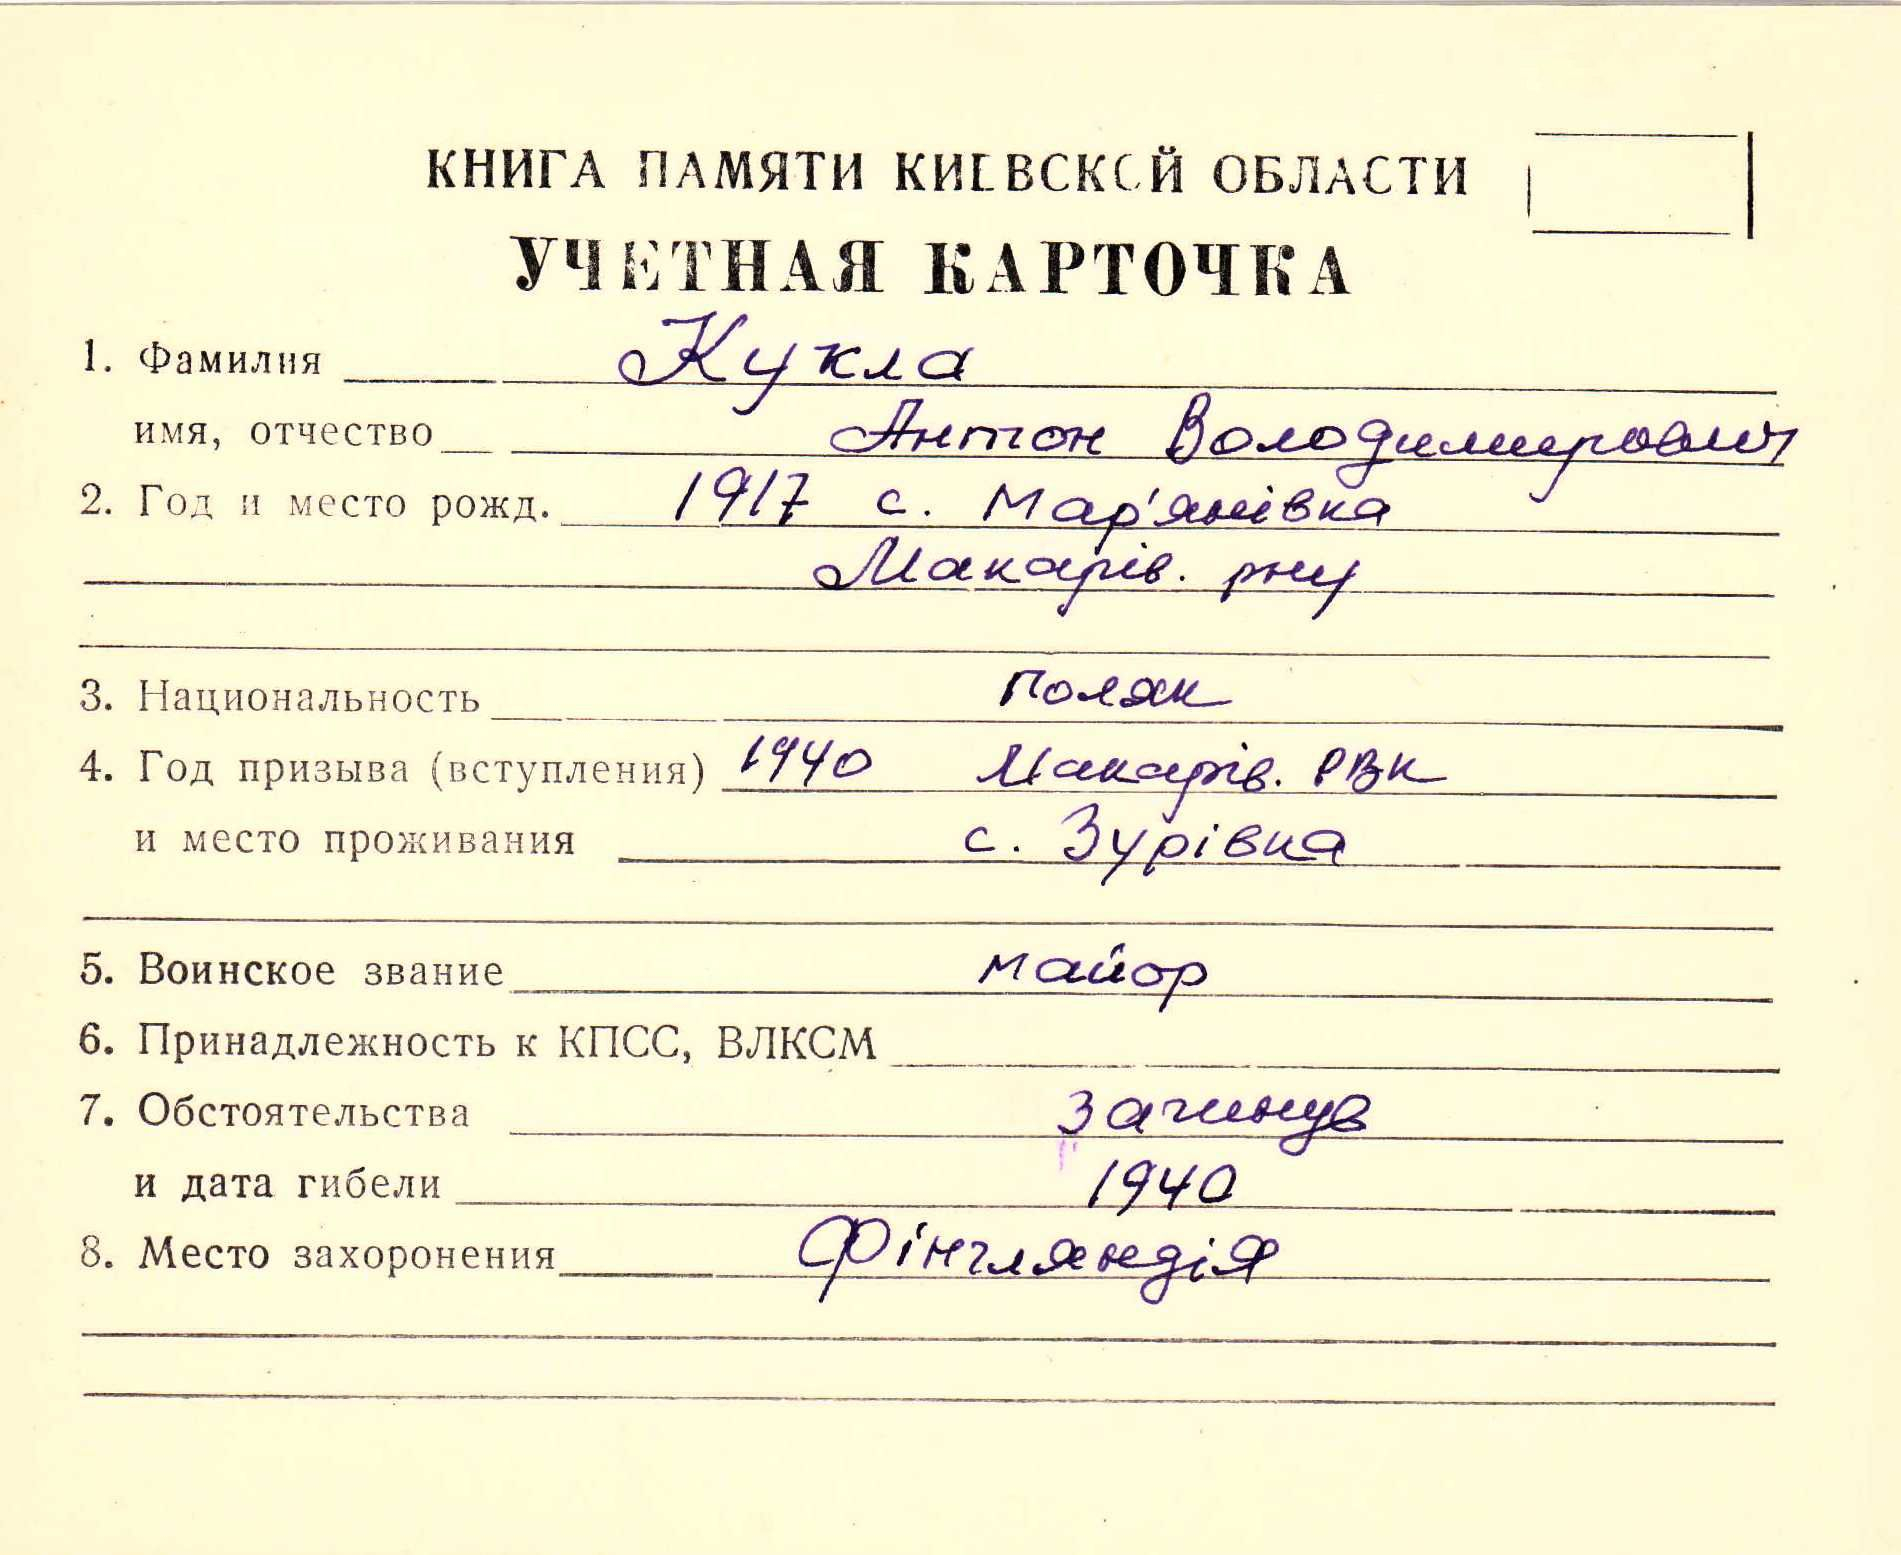 КНИГА ПАМЯТИ КИЕВСКОЙ ОБЛАСТИ
УЧЕТНАЯ КАРТОЧКА
1. Фамилия Кукла
имя, отчество Антон Володимирович
2. Год и место рожд. 1917 с. Мар'янівка
Макарів. рну
3. Национальность поляк
4. Год призыва (вступления) 1940 Макарів. РВК
и место проживания с. Зурівка
5. Воинское звание майор
6. Принадлежность к КПСС, ВЛКСМ
7. Обстоятельства загинув
и дата гибели 1940
8. Место захоронения Фінгляндія